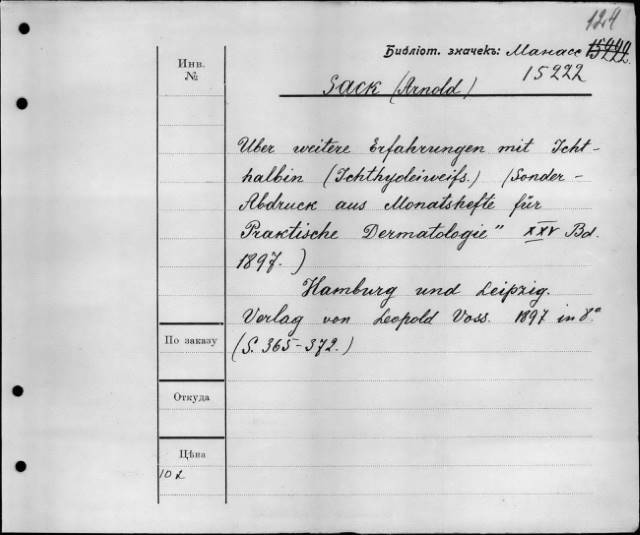 124
Библіот. значекъ: Манасс 15222.
15222
Инв.
№
Sack (Arnold)
Uber weitere Erfahrungen mit Icht-
halbin (Ichthyoleiweifs.) (Sonder-
Abdruck aus Monatshefte für
Praktische Dermatologie" XXV Bd.
1897.)
Hamburg und Leipzig.
Verlag von Leopold Voss. 1897 in 8.°
(S. 365-372.)
По заказу
Откуда
Цѣна
10 к